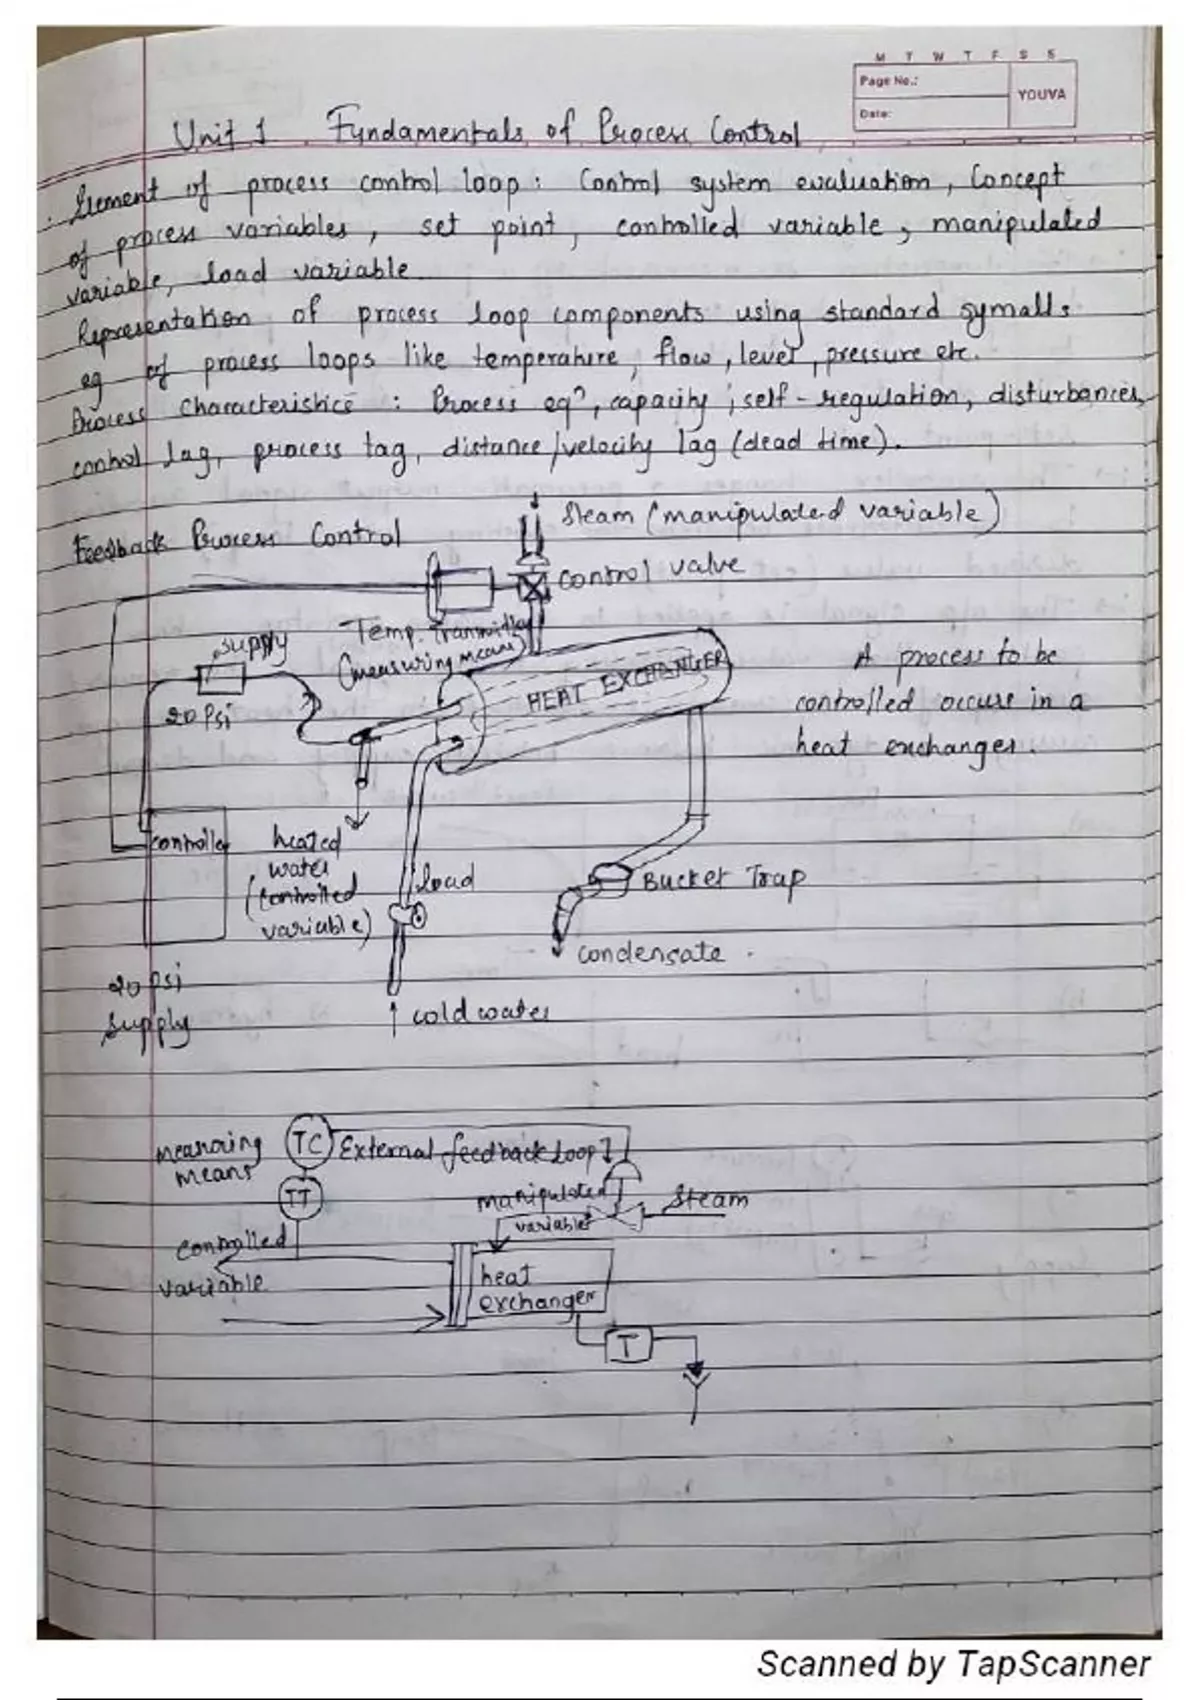 M T W T F S S
Page No.:
Date:
YOUVA
Unit 1 Fundamentals of Process Control
Element of process control loop: Control system evaluation, Concept
of process variables, set point, controlled variable, manipulated
variable, load variable.
Representation of process loop components using standard symalls:
eg of process loops like temperature, flow, level, pressure etc.
Process Characteristice : Process eqn, capacity; self-regulation, disturbances,
control lag, process tag, distance/velocity lag (dead time).
Feedback Process Control
Steam (manipulated variable)
control valve
Temp. Transmitter
(measuring means)
supply
20 Psi
HEAT EXCHANGER
A process to be
controlled occurs in a
heat exchanger.
controller
heated
water
(controlled
variable)
load
Bucket Trap
condensate
20 psi
supply
cold water
measuring
means
TC
External feedback Loop
TT
manipulated
variable
Steam
controlled
variable
heat
exchanger
T
Scanned by TapScanner